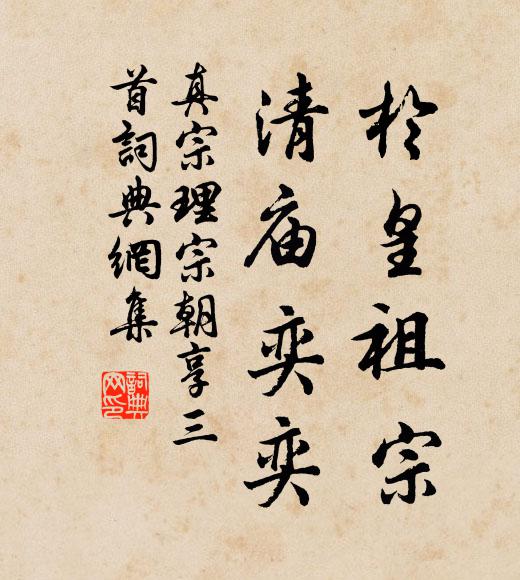 於皇祖宗
清庙奕奕
真宗理宗朝享三
首詞典網集
詞典网印